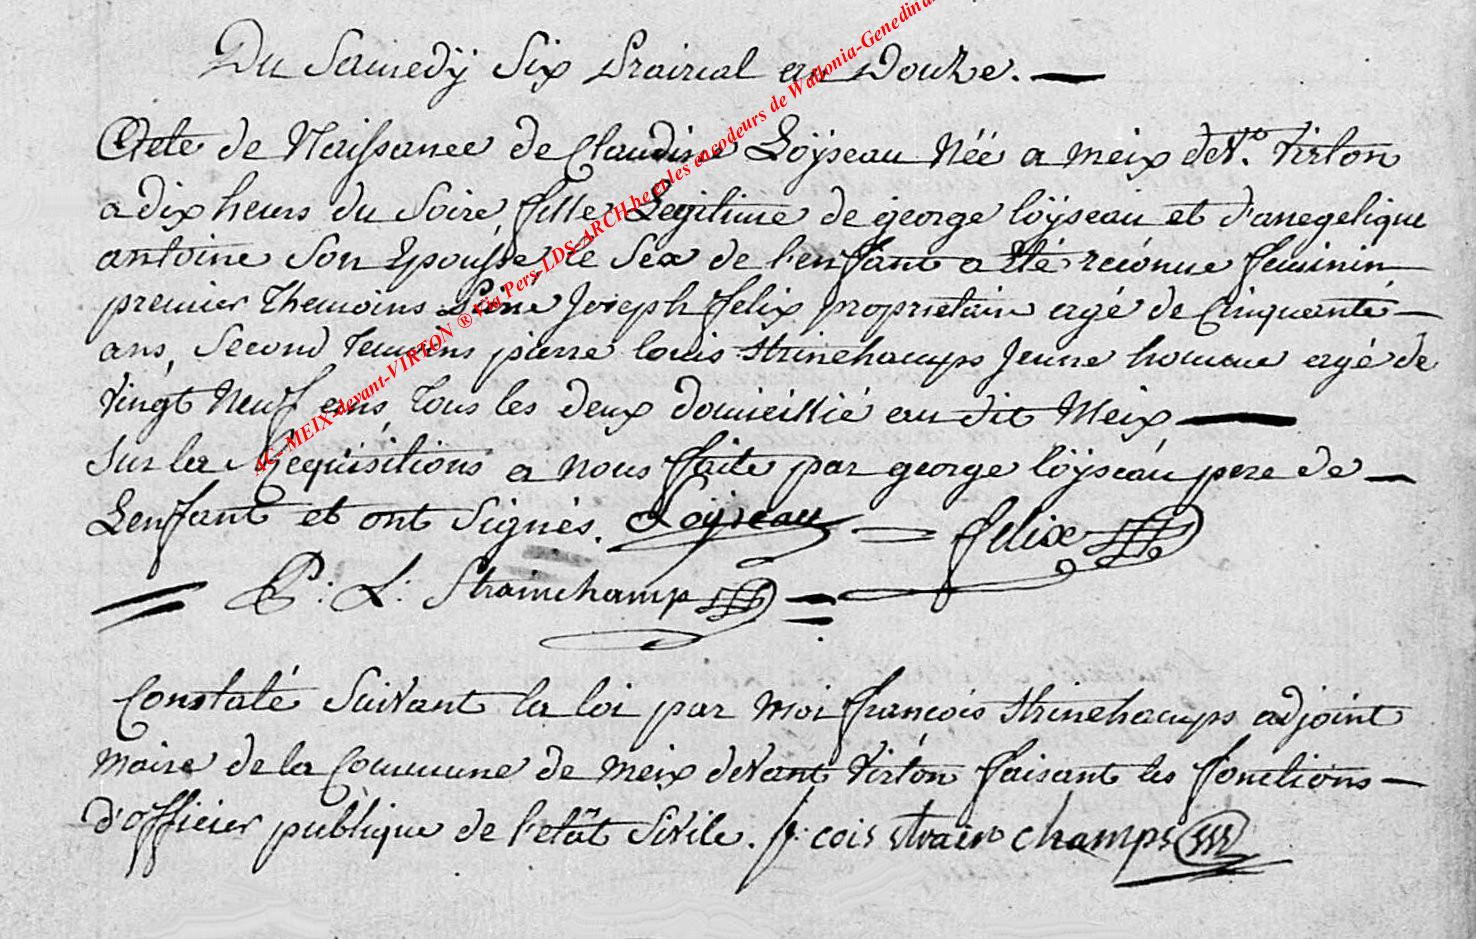 Du Samedÿ Six Prairial an Douze.
Acte de Naissance de Claudine Loÿseau Néé a meix det. Virton
a dix heurs du Soire fille Legitime de george loÿseau et d'anegelique
antoine Son Epousse, le Sex de l'enfant a eté réconnue feminin
premier Themoins Joseph felix propriétaire agé de Cinquante
ans, Second Temoins pierre louis strinchamps Jeune homme agé de
Vingt Neuf ans, Tous les deux domicillié au dit Meix
Sur la Requisitions a nous faite par george loÿseau pere de
L'enfant et ont Signés. Loÿseau felix
P: L: Strainchamp
Constaté Suivant la loi par moi francois strinchamps adjoint
maire de la Commune de meix devant Virton faisant les fonctions
d'officier publique de l'etât Sivile. f: cois strainchamps
AC - MEIX-devant-VIRTON ® Via Pers-LDS-ARCH.be et les encodeurs de Wallonia-Genedinat